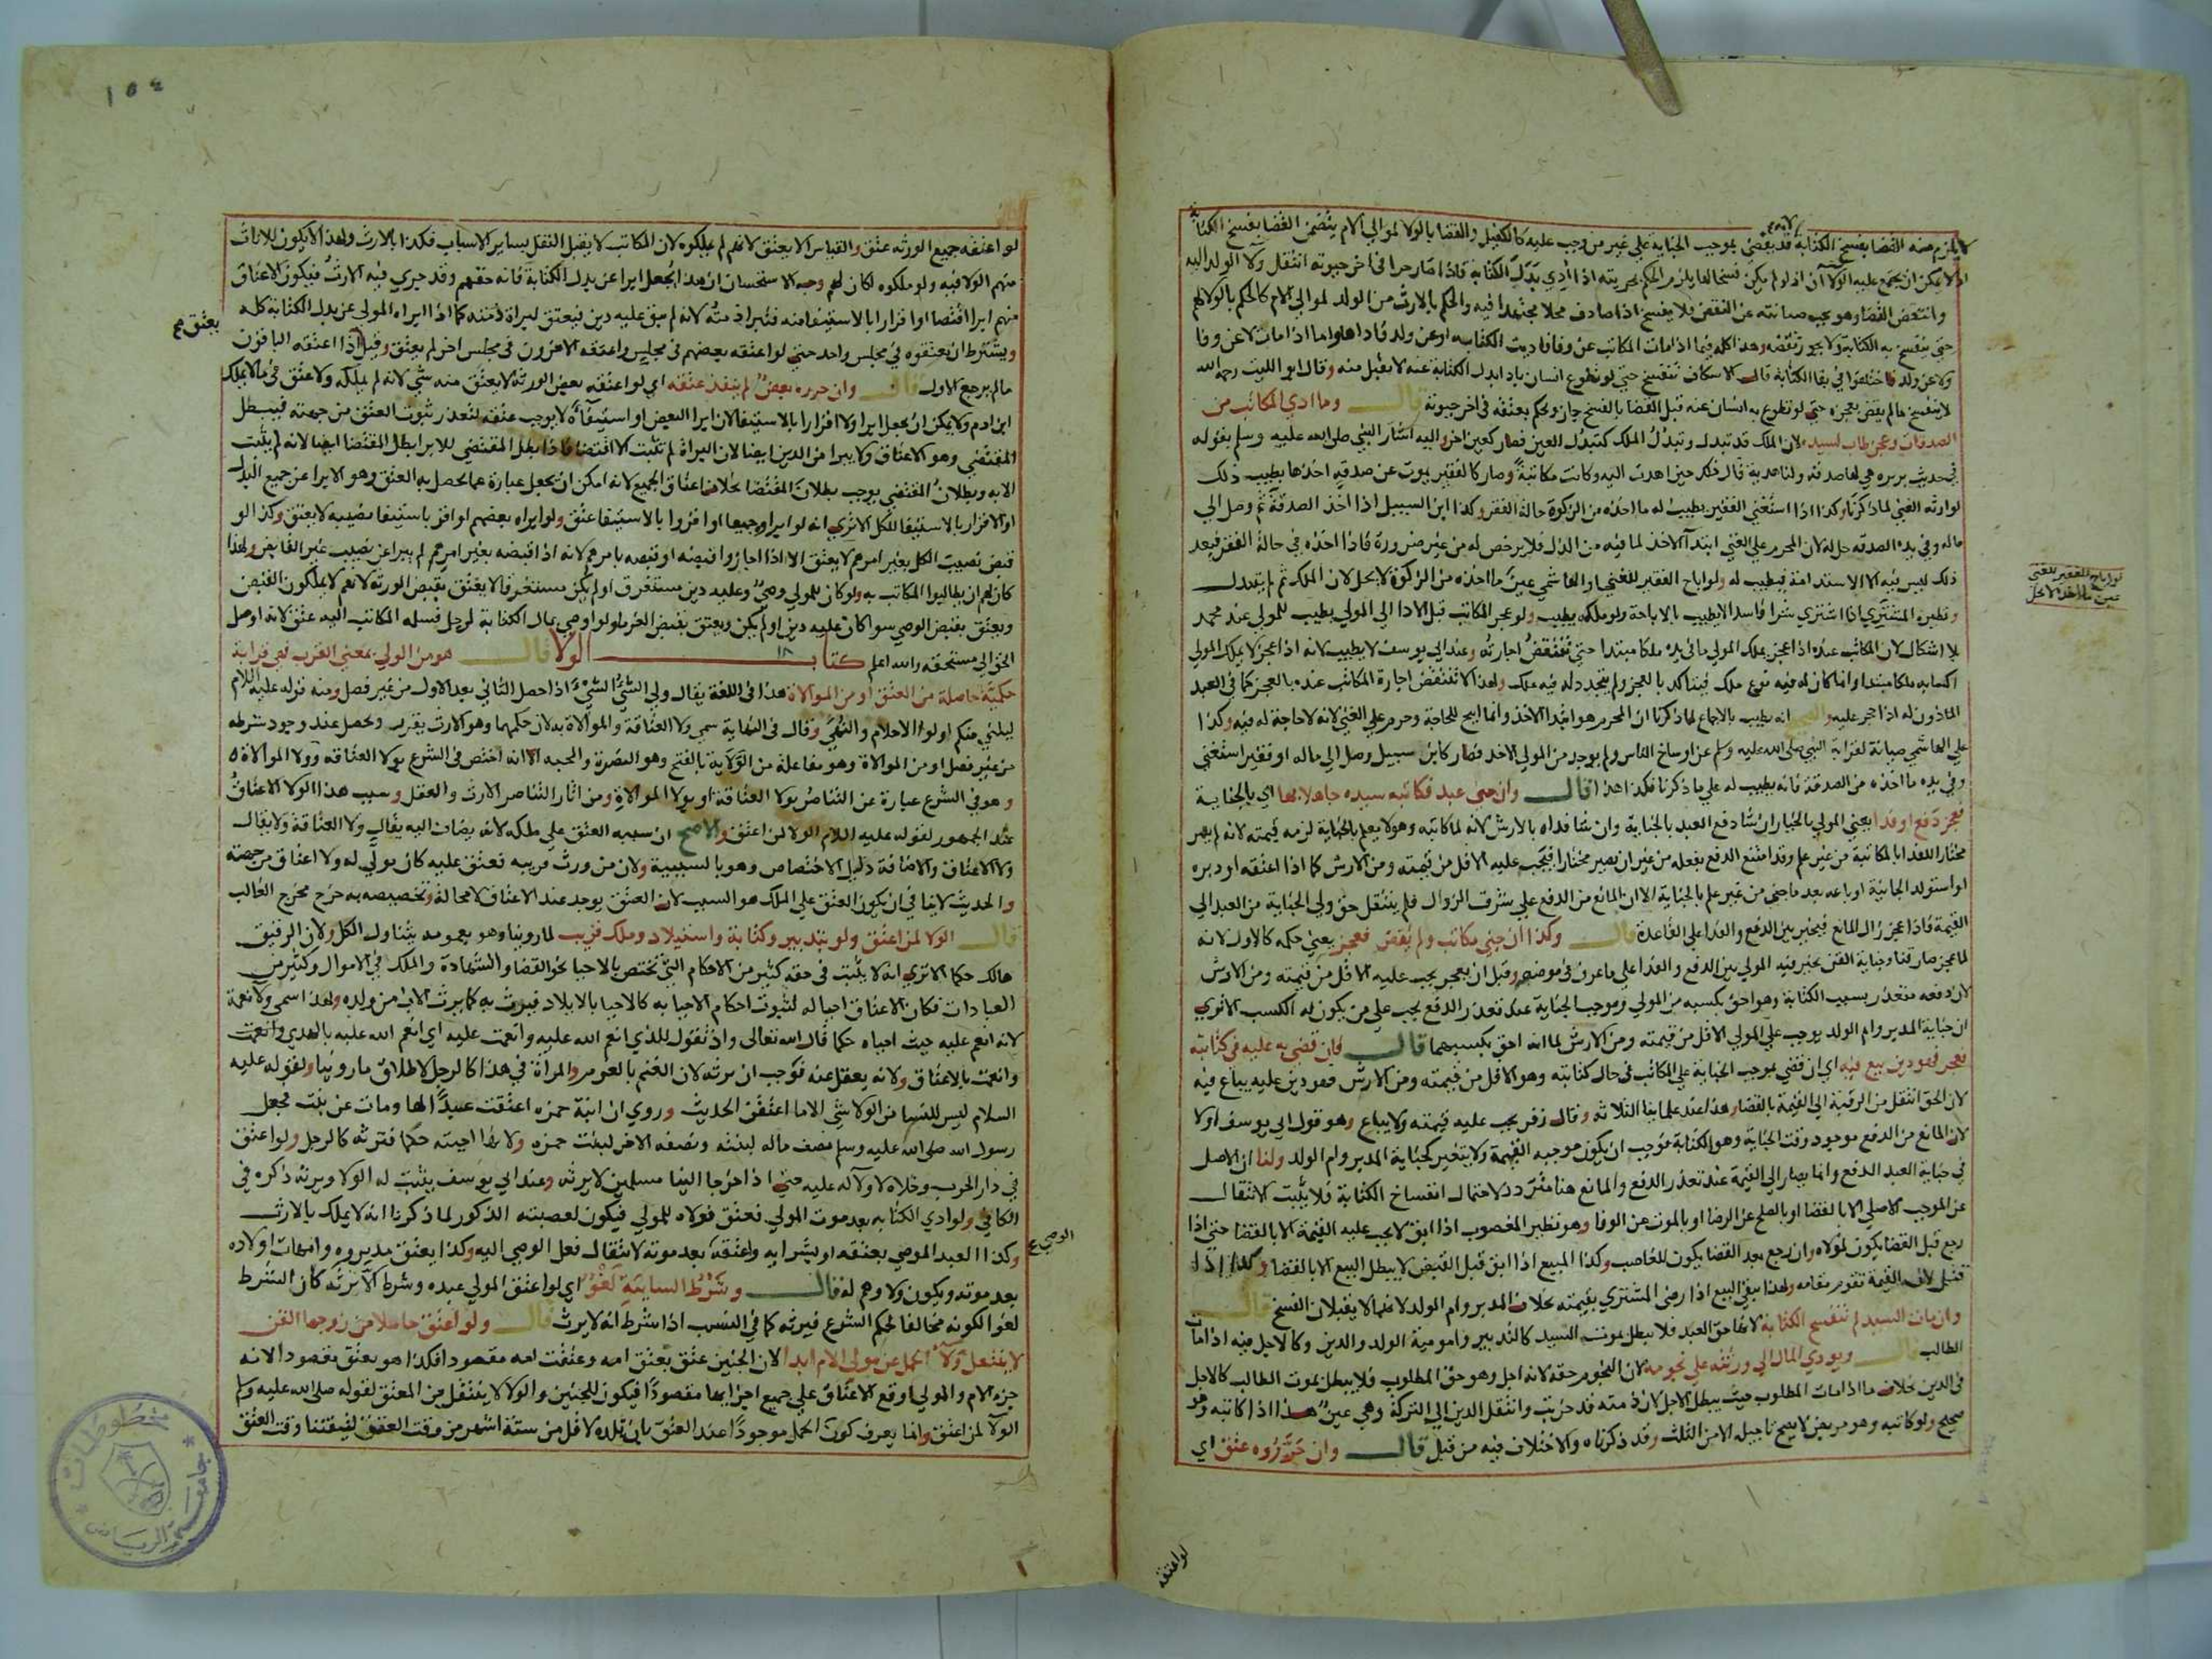 لا يلزم منه القضا بفسخ الكتابة قد يقضي بموجب الجناية علي غير من وجب عليه كالكفيل والقضا بالولا لموالي الام يتضمن القضا بفسخ الكتابة
اذ لا يمكن ان يجمع عليه الولا ان لو لم يكن فسخا لما يلزم الحكم بحريته اذا ادي بدل الكتابة فاذا صار حرا في اخر حيوته انتقل ولا الولد اليه
وانتقض القضا وهو يجب صيانته عن النقض فلا ينفسخ اذا صادف محلا مجتهدا فيه والحكم بالارث من الولد لموالي الام كالحكم بالولا لهم
حتي ينفسخ به الكتابة ولا يجوز نقضه وهذا كله فيما اذا مات المكاتب عن وفا فاديت الكتابه او عن ولد فاداها واما اذا مات لا عن وفا
ولا عن ولد فاختلفوا في بقا الكتابة قال الاسكاف تنفسخ حتي لو تطوع انسان بادا بدل الكتابة عنه لا يقبل منه وقال ابو الليث رحمه الله
لا ينفسخ مالم يقض بعجزه حتي لو تطوع به انسان عنه قبل القضا بالفسخ جاز ويحكم بعتقه في اخر حيوته قال وما ادي المكاتب من
الصدقات وعجز طاب لسيده لان الملك قد تبدل وتبدل الملك كتبدل العين فصار كعين اخر واليه اشار النبي صلى الله عليه وسلم بقوله
في حديث بريره هي لها صدقه ولنا هدية قال ذلك حين اهدت اليه وكانت مكاتبة وصار كالفقير يموت عن صدقة اخذها يطيب ذلك
لوارثه الغني لما ذكرنا وكذا اذا استغني الفقير يطيب له ما اخذه من الزكوة حالة الفقر وكذا ابن السبيل اذا اخذ الصدقة ثم وصل الي
ماله وفي يده الصدقه حل له لان المحرم علي الغني ابتدآ الاخذ لما فيه من الذل فلا يرخص له من غير ضرورة فاذا اخذه في حالة الفقر فبعد
ذلك ليس فيه الا الاستدامة فيطيب له ولو اباح الفقير للغني او الهاشمي عين ما اخذه من الزكوة لا يحل لان الملك لم يتبدل
ونظيره المشتري اذا اشتري شرا فاسدا لا يطيب بالاباحة ولو ملكه يطيب ولو عجز المكاتب قبل الادا الي المولي يطيب للمولي عند محمد
بلا اشكال لان المكاتب عنده اذا عجز يملك المولي ما في يده ملكا مبتدا حتي تنتقض اجارته وعند ابي يوسف لا يطيب لانه اذا عجز لا يملك المولي
اكسابه ملكا مبتدا وانما كان له فيه نوع ملك فيتاكد بالعجز ولم يتجدد له فيه ملك ولهذا لا تنتقض اجارة المكاتب عنده بالعجز كما في العبد
الماذون له اذا حجر عليه والصحيح انه يطيب بالاجماع لما ذكرنا ان المحرم هو ابتدا الاخذ وانما ابيح للحاجة وحرم علي الغني لانه لا حاجة له فيه وكذا
علي الهاشمي صيانة لقرابة النبي صلى الله عليه وسلم عن اوساخ الناس ولم يوجد من المولي الاخذ فصار كابن سبيل وصل الي ماله او فقير استغني
وفي يده ما اخذه من الصدقة فانه يطيب له علي ما ذكرنا فكذا هذا قال وان جني عبد فكاتبه سيده جاهلا بها اي بالجناية
فعجز دفع او فدا يعني المولي بالخيار ان شا دفع العبد بالجناية وان شا فداه بالارش لانه لما كاتبه وهو لا يعلم بالجناية لزمه قيمته لانه لم يصر
مختارا للفدا بالمكاتبة من غير علم وقد امتنع الدفع بفعله من غير ان يصير مختارا فيجب عليه الاقل من قيمته ومن الارش كما اذا اعتقه او دبره
او استولد الجانية او باعه بعد ما جني من غير علم بالجناية الا ان المانع من الدفع علي شرف الزوال فلم ينتقل حق ولي الجناية من العبد الي
القيمة فاذا عجز زال المانع فيخير بين الدفع والفدا علي القاعدة قال وكذا ان جني مكاتب ولم يقض فعجز يعني حكمه كالاول لانه
لما عجز صار قنا وجناية القن يخير فيه المولي بين الدفع والفدا علي ما عرف في موضعه وقبل ان يعجز يجب عليه الاقل من قيمته ومن الارش
لان دفعه متعذر بسبب الكتابة وهو احق بكسبه من المولي وموجب الجناية عند تعذر الدفع يجب علي من يكون له الكسب الا تري
ان جناية المدبر وام الولد يوجب علي المولي الاقل من قيمته ومن الارش لما انه احق بكسبهما قال فان قضي به عليه في كتابته
فعجز فهو دين بيع فيه اي ان قضي بموجب الجناية علي المكاتب في حال كتابته وهو الاقل من قيمته ومن الارش فهو دين عليه يباع فيه
لان الحق انتقل من الرقبة الي القيمة بالقضا وهذا عند علمائنا الثلاثه وقال زفر يجب عليه قيمته ولا يباع وهو قول ابي يوسف اولا
لان المانع من الدفع موجود وقت الجناية وهو الكتابة فوجب ان يكون موجبه القيمة ولا يتغير كجناية المدبر وام الولد ولنا ان الاصل
في جناية العبد الدفع وانما يصار الي القيمة عند تعذر الدفع والمانع هنا متردد لاحتمال انفساخ الكتابة فلا يثبت الانتقال
عن الموجب الاصلي الا بالقضا او بالصلح عن الرضا او بالموت عن الوفا وهو نظير المغصوب اذا ابق لا يجب عليه القيمة الا بالقضا حتي اذا
رجع قبل القضا يكون لمولاه وان رجع بعد القضا يكون للغاصب وكذا المبيع اذا ابق قبل القبض لا يبطل البيع الا بالقضا وكذا اذا
قتل لان القيمة تقوم مقامه ولهذا يبقي البيع اذا رضي المشتري بقيمته بخلاف المدبر وام الولد لانهما لا يقبلان الفسخ قال
وان مات السيد لم تنفسخ الكتابة لانها حق العبد فلا يبطل بموت السيد كالتدبير وامومية الولد والدين وكالاجل فيه اذا مات
الطالب قال ويودي المال الي ورثته علي نجومه لان النجوم حقه لانه اجل وهو حق المطلوب فلا يبطل بموت الطالب كالاجل
في الدين بخلاف ما اذا مات المطلوب حيث يبطل الاجل لان ذمته قد خربت وانتقل الدين الي التركة وهي عين هذا اذا كاتبه وهو
صحيح ولو كاتبه وهو مريض لا يصح تاجيله الا من الثلث وقد ذكرناه والاختلاف فيه من قبل قال وان حرروه عتق اي
لو اباح الفقير للغني
عين ما اخذ لا يحل
لو اعتقه
١٥٤
لو اعتقه جميع الورثه عتق والقياس الا يعتق لانهم لم يملكوه لان المكاتب لا يقبل النقل بساير الاسباب فكذا بالارث ولهذا لا يكون للاناث
منهم الولا فيه ولو ملكوه لكان لهم وجه الاستحسان ان هذا يجعل ابرا عن بدل الكتابة فانه حقهم وقد جري فيه الارث فيكون الاعتاق
منهم ابرا اقتضا او اقرارا بالاستيفا منه فتبرا ذمته لانه لم يبق عليه دين فيعتق لبراة ذمته كما اذا ابراه المولي عن بدل الكتابة كله
ويشترط ان يعتقوه في مجلس واحد حتي لو اعتقه بعضهم في مجلس واعتقه الاخرون في مجلس اخر لم يعتق وقيل اذا اعتقه الباقون
يعتق صح
مالم يرجع الاول قال وان حرره بعض لم ينفذ عتقه اي لو اعتقه بعض الورثة لا يعتق منه شي لانه لم يملكه ولا عتق في ما لا يملك
ابن ادم ولا يمكن ان يجعل ابرا ولا اقرارا بالاستيفا لان ابرا البعض او استيفاه لا يوجب عتقه لتعذر ثبوت العتق من جهته فيبطل
المقتضي وهو الاعتاق ولا يبرا من الدين ايضا لان البراة لم تثبت الا اقتضا فاذا بطل المقتضي للابرا بطل المقتضا ايضا لانه لم يثبت
الا به وبطلان المقتضي يوجب بطلان المقتضا بخلاف اعتاق الجميع لانه امكن ان يجعل عبارة عما يحصل به العتق وهو الابرا عن جميع البدل
او الاقرار بالاستيفا للكل الا تري انه لو ابراوه جميعا او اقروا بالاستيفا عتق ولو ابراه بعضهم او اقر باستيفا نصيبه لا يعتق وكذا لو
قبض نصيب الكل بغير امرهم لا يعتق الا اذا اجازوا قبضه او قبضه بامرهم لانه اذا قبضه بغير امرهم لم يبرا عن نصيب غير القابض ولهذا
كان لهم ان يطالبوا المكاتب به ولو كان للمولي وصي وعليه دين مستغرق او لم يكن مستغرقا لا يعتق بقبض الورثه لانهم لا يملكون القبض
ويعتق بقبض الوصي سوا كان عليه دين او لم يكن ويعتق بقبض الغرما ولو اوصي بمال الكتابة لرجل فسلمه المكاتب اليه عتق لانه اوصل
الحق الي مستحقه والله اعلم كتاب الولا قال هو من الولي بمعني القرب فهي قرابة
حكمية حاصلة من العتق او من الموالاة هذا في اللغة يقال ولي الشي الشي اذا حصل الثاني بعد الاول من غير فصل ومنه قوله عليه السلام
ليلني منكم اولوا الاحلام والنهي وقال في النهاية سمي ولا العتاقة والموالاة بذلك لان حكمهما وهو الارث يقرب ويحصل عند وجود شرطه
من غير فصل او من الموالاة وهو مفاعلة من الولاية بالفتح وهو النصرة والمحبه الا انه اختص في الشرع بولا العتاقه وولا الموالاة
وهو في الشرع عبارة عن التناصر بولا العتاقة او بولا الموالاة ومن اثار التناصر الارث والعقل وسبب هذا الولا الاعتاق
عند الجمهور لقوله عليه السلام الولا لمن اعتق والاصح ان سببه العتق علي ملكه لانه يضاف اليه يقال ولا العتاقة ولا يقال
ولا الاعتاق والاضافة دليل الاختصاص وهو بالسببية ولان من ورث قريبه فعتق عليه كان مولي له ولا اعتاق من جهته
والحديث لا ينافي ان يكون العتق علي الملك هو السبب لان العتق يوجد عند الاعتاق لا محالة وتخصيصه به خرج مخرج الغالب
قال الولا لمن اعتق ولو بتدبير وكتابة واستيلاد وملك قريب لما روينا وهو بعمومه يتناول الكل ولان الرقيق
هالك حكما الا تري انه لا يثبت في حقه كثير من الاحكام التي تختص بالاحيا نحو القضا والشهادة والملك في الاموال وكثير من
العبادات فكان الاعتاق احيا له لثبوت احكام الاحيا به كالاحيا بالايلاد فيرث به كما يرث الاب من ولده ولهذا سمي ولا نعمة
لانه انعم عليه حيث احياه حكما قال الله تعالى واذ تقول للذي انعم الله عليه وانعمت عليه اي انعم الله عليه بالهدي وانعمت
وانعمت بالاعتاق ولانه يعقل عنه فوجب ان يرثه لان الغنم بالغرم والمراة في هذا كالرجل لاطلاق ما روينا ولقوله عليه
السلام ليس للنسا من الولا شي الا ما اعتقن الحديث وروي ان ابنة حمزه اعتقت عبدا لها ومات عن بنت فجعل
رسول الله صلى الله عليه وسلم نصف ماله لبنته ونصفه الاخر لبنت حمزه ولانها احيته حكما فترثه كالرجل ولو اعتق
في دار الحرب وخلاه لا ولآ له عليه حتي اذا خرجا الينا مسلمين لا يرثه وعند ابي يوسف يثبت له الولا ويرثه ذكره في
الكافي ولو ادي الكتابه بعد موت المولي فعتق فولاه للمولي فيكون لعصبته الذكور لما ذكرنا انه لا يملك بالارث
وكذا العبد الموصي بعتقه او بشرايه واعتقه بعد موته لانتقال فعل الوصي اليه وكذا يعتق مدبروه وامهات اولاده
الوصي
بعد موته ويكون ولاوهم له قال وشرط السايبة لغو اي لو اعتق المولي عبده وشرط الا يرثه كان الشرط
لغوا لكونه مخالفا لحكم الشرع فيرثه كما في النسب اذا شرط انه لا يرث قال ولو اعتق حاملا من زوجها القن
لا ينتقل ولآ الحمل عن مولي الام ابدا لان الجنين عتق بعتق امه وعتقت امه مقصودا فكذا هو يعتق مقصودا لانه
جزء الام والمولي اوقع الاعتاق علي جميع اجزايها مقصودا فيكون للجنين والولا لا ينتقل من المعتق لقوله صلى الله عليه وسلم
الولآ لمن اعتق وانما يعرف كون الحمل موجودا عند العتق بان تلده لاقل من ستة اشهر من وقت العتق لتيقننا وقت العتق
جامعة الرياض
مخطوطات